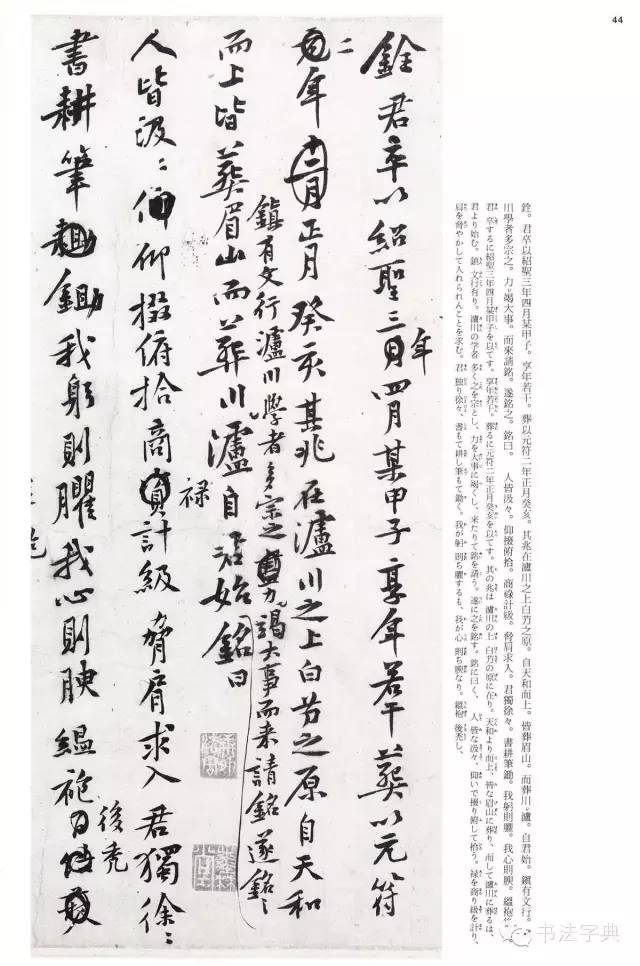 44
銓君卒以紹聖三年四月某甲子享年若干葬以元符
二年十二月正月癸亥其兆在瀘川之上白芀之原自天和
而上皆葬眉山而葬川瀘自君始銘曰
鎮有文行瀘川學者多宗之力竭大事而来請銘遂銘之
人皆汲〻仰掇俯拾商禄計級脅肩求入君獨徐〻
書耕筆鋤我躬則臞我心則腴縕袍
後禿
銓。君卒以紹聖三年四月某甲子。享年若干。葬以元符二年正月癸亥。其兆在瀘川之上白芀之原。自天和而上。皆葬眉山。而葬川瀘。自君始。鎮有文行。
川學者多宗之。力竭大事。而來請銘。遂銘之。銘曰。 人皆汲々。仰掇俯拾。商祿計級。脅肩求入。君獨徐々。書耕筆鋤。我躬則臞。我心則腴。縕袍
君 卒するに紹聖三年四月某甲子を以てす。享年若干。葬るに元符二年正月癸亥を以てす。其の兆は 瀘川の上 白芀の原に在り。天和より而上、皆な眉山に葬り、而して瀘川に葬るは、
君より始む。鎮 文行有り。瀘川の学者 多く之を宗とし、力を大事に竭くし、来たりて銘を請う。遂に之を銘す。銘に曰く、 人 皆な汲々、仰いで掇り俯して拾う。禄を商り級を計り、
肩を脅やかして入れられんことを求む。君 独り徐々、書もて耕し筆もて鋤く。我が躬 則ち臞するも、我が心 則ち腴なり。縕袍 後禿し、
书法字典